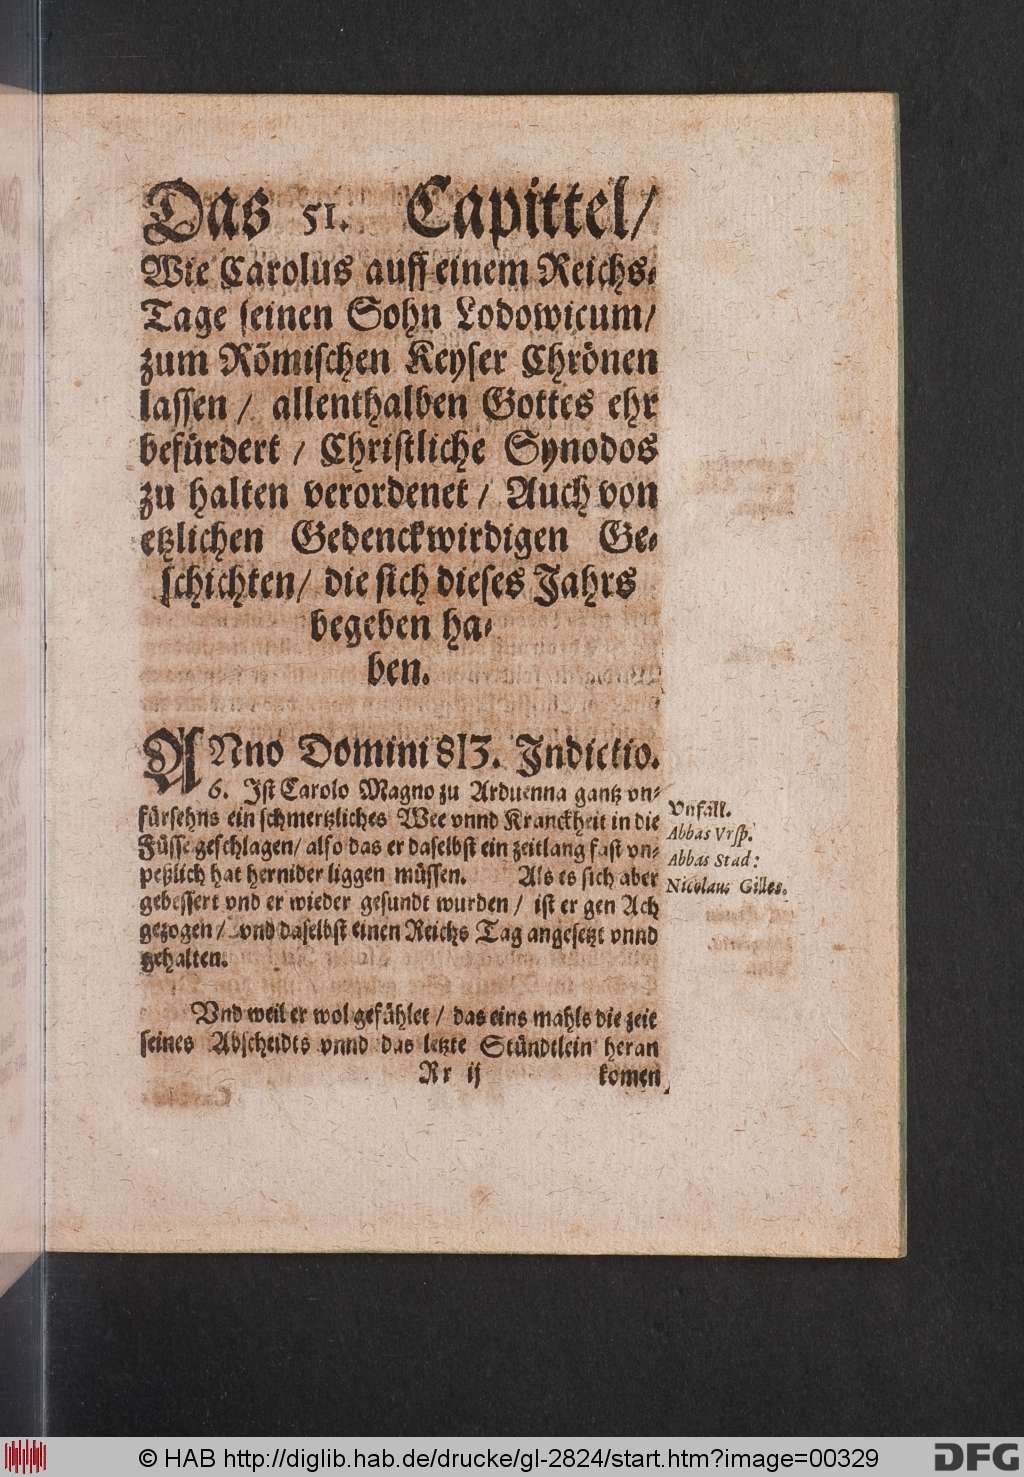 Das 51. Capittel/
Wie Carolus auff einem Reichs-
Tage seinen Sohn Lodowicum/
zum Römischen Keyser Chrönen
lassen / allenthalben Gottes ehr
befürdert / Christliche Synodos
zu halten verordenet / Auch von
etzlichen Gedenckwirdigen Ge-
schichten/ die sich dieses Jahrs
begeben ha-
ben.
ANno Domini 813. Indictio.
6. Ist Carolo Magno zu Arduenna gantz vn-
fürsehns ein schmertzliches Wee vnnd Kranckheit in die
Füsse geschlagen/ also das er daselbst ein zeitlang fast vn-
peßlich hat hernider liggen müssen. Als es sich aber
gebessert vnd er wieder gesundt wurden / ist er gen Ach
gezogen / vnd daselbst einen Reichs Tag angesetzt vnnd
gehalten.
Vnfall.
Abbas Vrsp.
Abbas Stad:
Nicolaus Gilles.
Vnd weil er wol gefühlet / das eins mahls die zeit
seines Abscheidts vnnd das letzte Stündtlein heran
Rr ij komen
© HAB http://diglib.hab.de/drucke/gl-2824/start.htm?image=00329
DFG